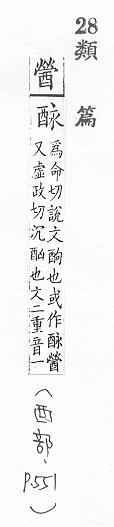 28
類篇
醟
酩
為命切說文酌也或作酩醟
又虛政切沉酗也文二重音一
(酉部、P.551)